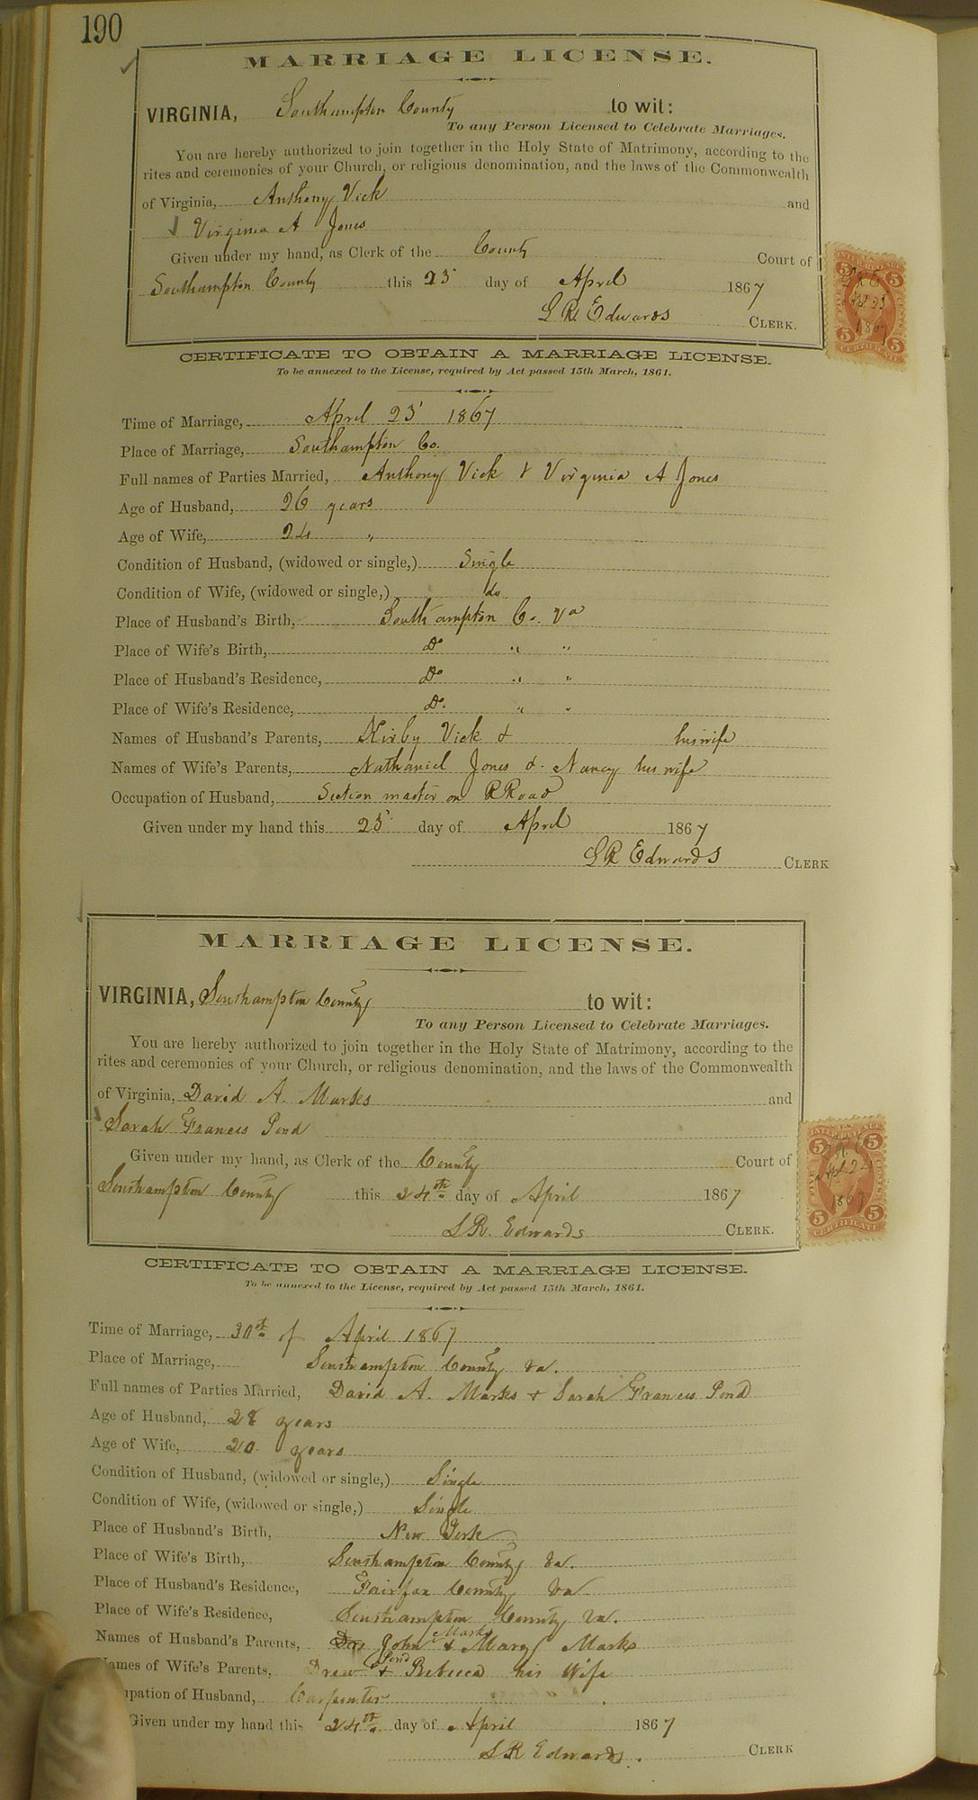 190
MARRIAGE LICENSE.
VIRGINIA, Southampton County to wit:
To any Person Licensed to Celebrate Marriages.
You are hereby authorized to join together in the Holy State of Matrimony, according to the
rites and ceremonies of your Church, or religious denomination, and the laws of the Commonwealth
of Virginia, Anthony Vick and
Virginia A Jones
Given under my hand, as Clerk of the County Court of
Southampton County this 25 day of April 1867
L R Edwards CLERK.
CERTIFICATE TO OBTAIN A MARRIAGE LICENSE.
To be annexed to the License, required by Act passed 15th March, 1861.
Time of Marriage, April 25 1867
Place of Marriage, Southampton Co.
Full names of Parties Married, Anthony Vick & Virginia A Jones
Age of Husband, 26 years
Age of Wife, 24 "
Condition of Husband, (widowed or single,) Single
Condition of Wife, (widowed or single,) do
Place of Husband's Birth, Southampton Co. Va
Place of Wife's Birth, Do " "
Place of Husband's Residence, Do " "
Place of Wife's Residence, Do. " "
Names of Husband's Parents, Kirby Vick & his wife
Names of Wife's Parents, Nathaniel Jones & Nancy his wife
Occupation of Husband, Section master on R Road
Given under my hand this 25 day of April 1867
L R Edwards CLERK
MARRIAGE LICENSE.
VIRGINIA, Southampton County to wit:
To any Person Licensed to Celebrate Marriages.
You are hereby authorized to join together in the Holy State of Matrimony, according to the
rites and ceremonies of your Church, or religious denomination, and the laws of the Commonwealth
of Virginia, David A. Marks and
Sarah Francis Pond
Given under my hand, as Clerk of the County Court of
Southampton County this 24th day of April 1867
L R. Edwards CLERK.
CERTIFICATE TO OBTAIN A MARRIAGE LICENSE.
To be annexed to the License, required by Act passed 15th March, 1861.
Time of Marriage, 30th of April 1867
Place of Marriage, Southampton County Va.
Full names of Parties Married, David A. Marks & Sarah Francis Pond
Age of Husband, 28 years
Age of Wife, 20 years
Condition of Husband, (widowed or single,) Single
Condition of Wife, (widowed or single,) Single
Place of Husband's Birth, New York
Place of Wife's Birth, Southampton County Va.
Place of Husband's Residence, Fairfax County Va
Place of Wife's Residence, Southampton County Va.
Names of Husband's Parents, John Marks & Mary Marks
Names of Wife's Parents, Drew Pond & Rebecca his Wife
upation of Husband, Carpenter
Given under my hand this 24th day of April 1867
L R Edwards. CLERK